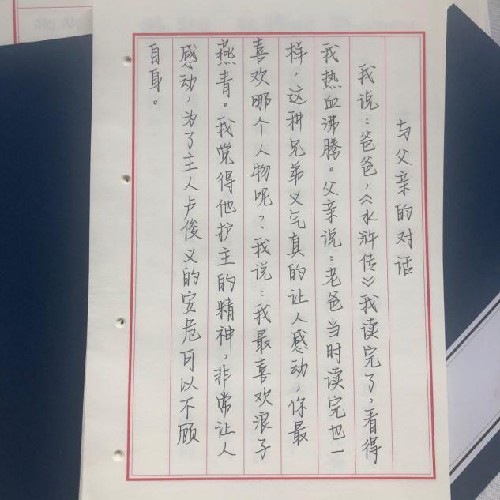 与父亲的对话
我说：爸爸，《水浒传》我读完了，看得
我热血沸腾。父亲说：老爸当时读完也一
样，这种兄弟义气真的让人感动，你最
喜欢哪个人物呢？我说：我最喜欢浪子
燕青。我觉得他护主的精神，非常让人
感动，为了主人卢俊义的安危可以不顾
自身。